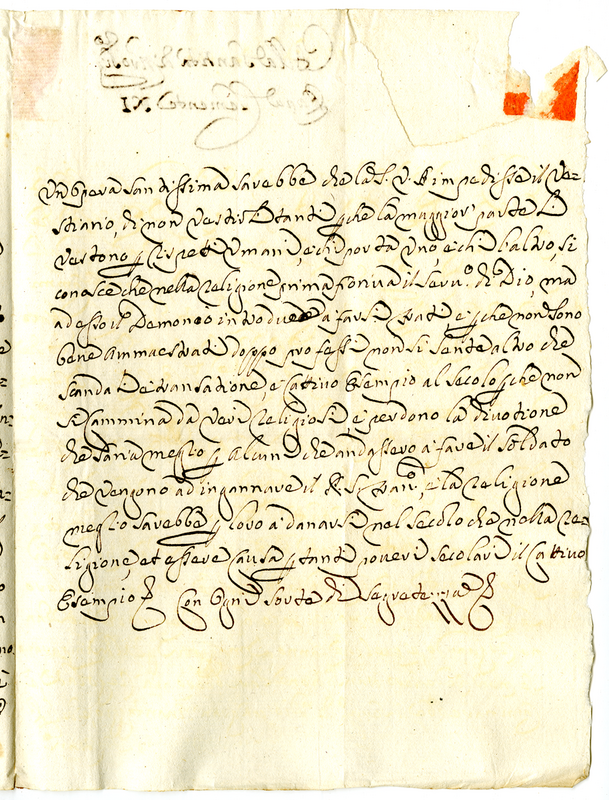 Alla Santità di Nro Sigre
Papa Clemente XI
Un opera santissima sarebbe che la S. V. R impedisse il Ve-
stiario, di non vestir tanti p che la maggior parte li
vestono p rispetti umani, e chi porta uno, e chi l'altro, si
conosce che nella religione prima fioriva il seru.o di Dio, ma
adesso il Demonio introduce a farsi frati, e p che non sono
bene ammaestrati doppo professi non si sente altro che
scandali e transatione, e Cattivo Esempio al secolo p che non
si Cammina da veri religiosi, e perdono la divotione
che saria meglio p alcuni che andassero a fare il soldato
che vengono ad ingannare il S. e la religione
meglio sarebbe p loro a danarsi nel secolo che nella re-
ligione, et essere causa p tanti poveri secolari il Cattivo
Esempio Con Ogni sorte di segrete